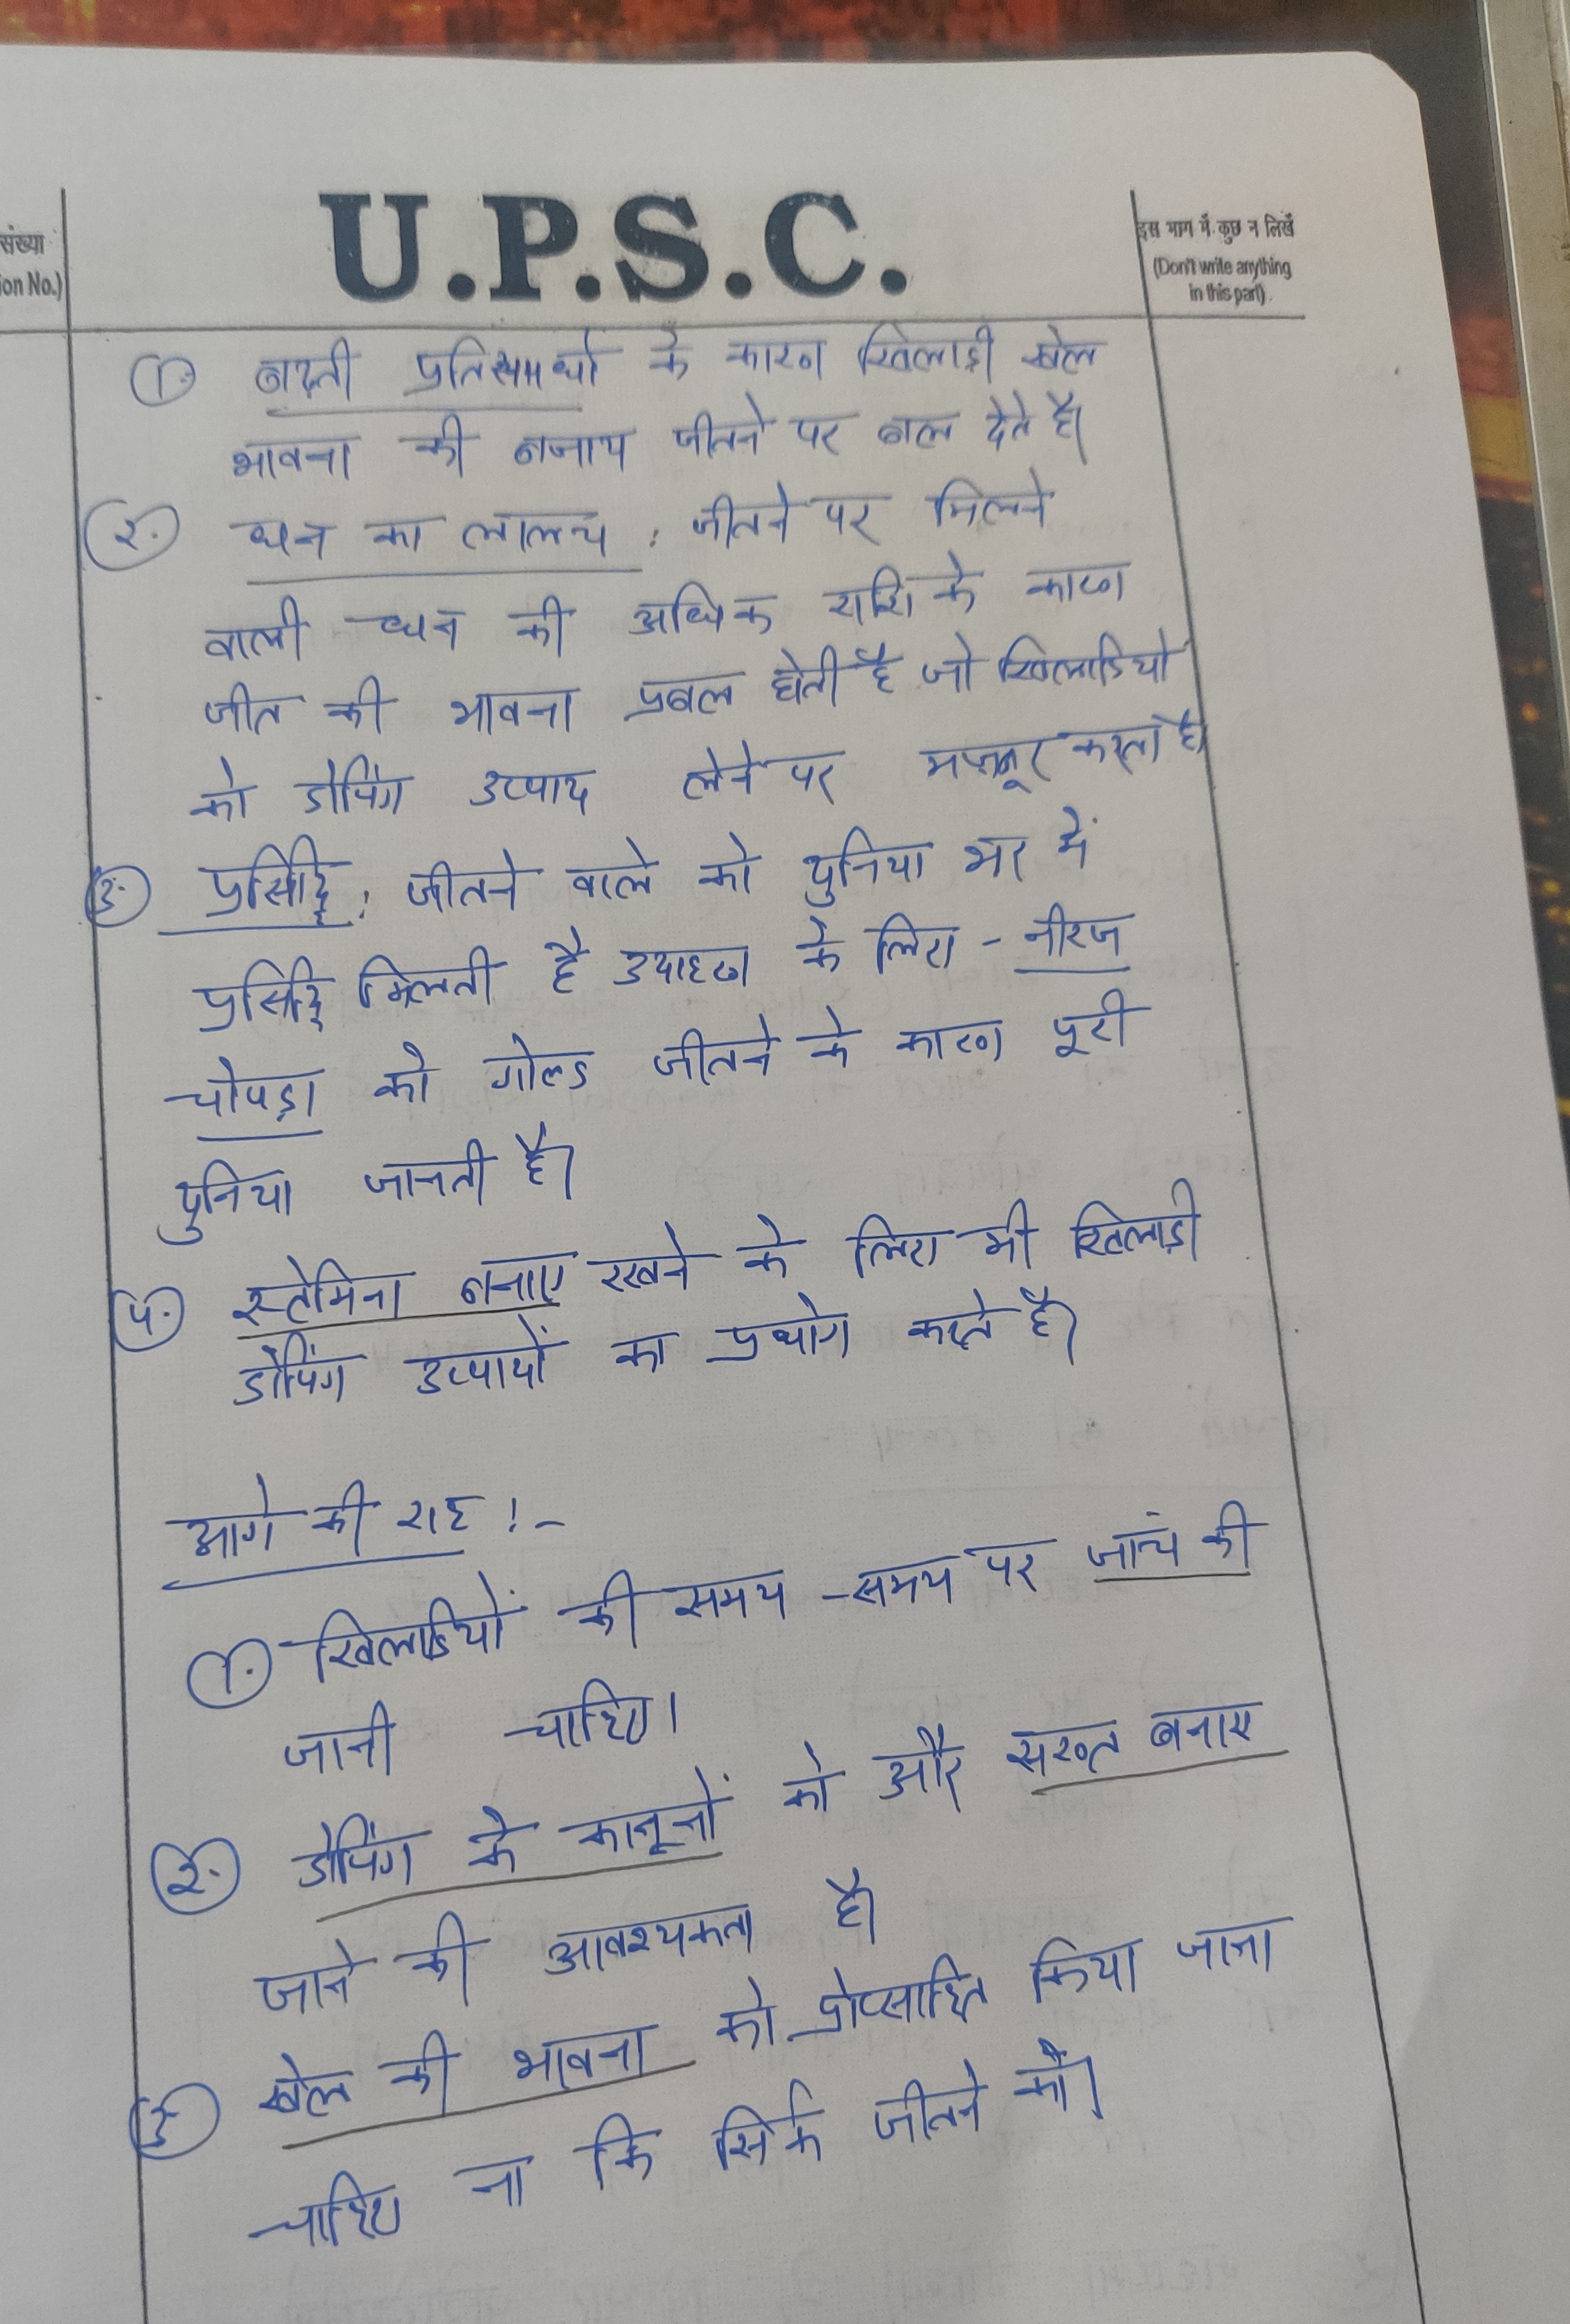 संख्या
ion No.)
U.P.S.C.
इस भाग में कुछ न लिखें
(Don't write anything
in this part)
1. बढ़ती प्रतिस्पर्धा के कारण खिलाड़ी खेल
भावना की बजाय जीतने पर बल देते है।
2. धन का लालच : जीतने पर मिलने
वाली धन की अधिक राशि के कारण
जीत की भावना प्रबल होती है जो खिलाडियो
को डोपिंग उत्पाद लेने पर मजबूर करता है।
3. प्रसिद्दि : जीतने वाले को दुनिया भर में
प्रसिद्दि मिलती है उदाहरण के लिए - नीरज
चोपड़ा को गोल्ड जीतने के कारण पूरी
दुनिया जानती है।
4. स्टेमिना बनाए रखने के लिए भी खिलाड़ी
डोपिंग उत्पादों का प्रयोग करते है।
आगे की राह :-
1. खिलाडियों की समय-समय पर जांच की
जानी चाहिए।
2. डोपिंग के कानूनों को और सख्त बनाए
जाने की आवश्यकता है।
3. खेल की भावना को प्रोत्साहित किया जाना
चाहिए ना कि सिर्फ जीतने को।